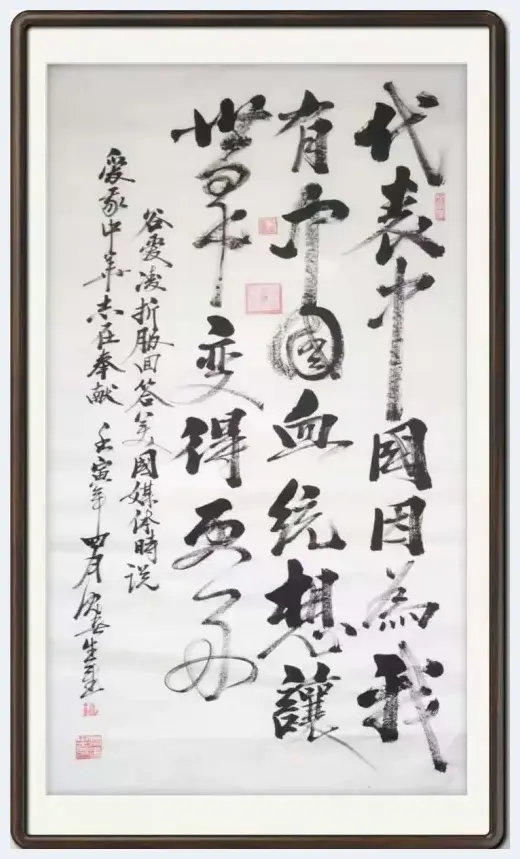 代表中國因為我
有中國血统想讓
世界变得更好
谷愛凌折服回答美國媒体時说
愛中華志在奉献 壬寅年四月